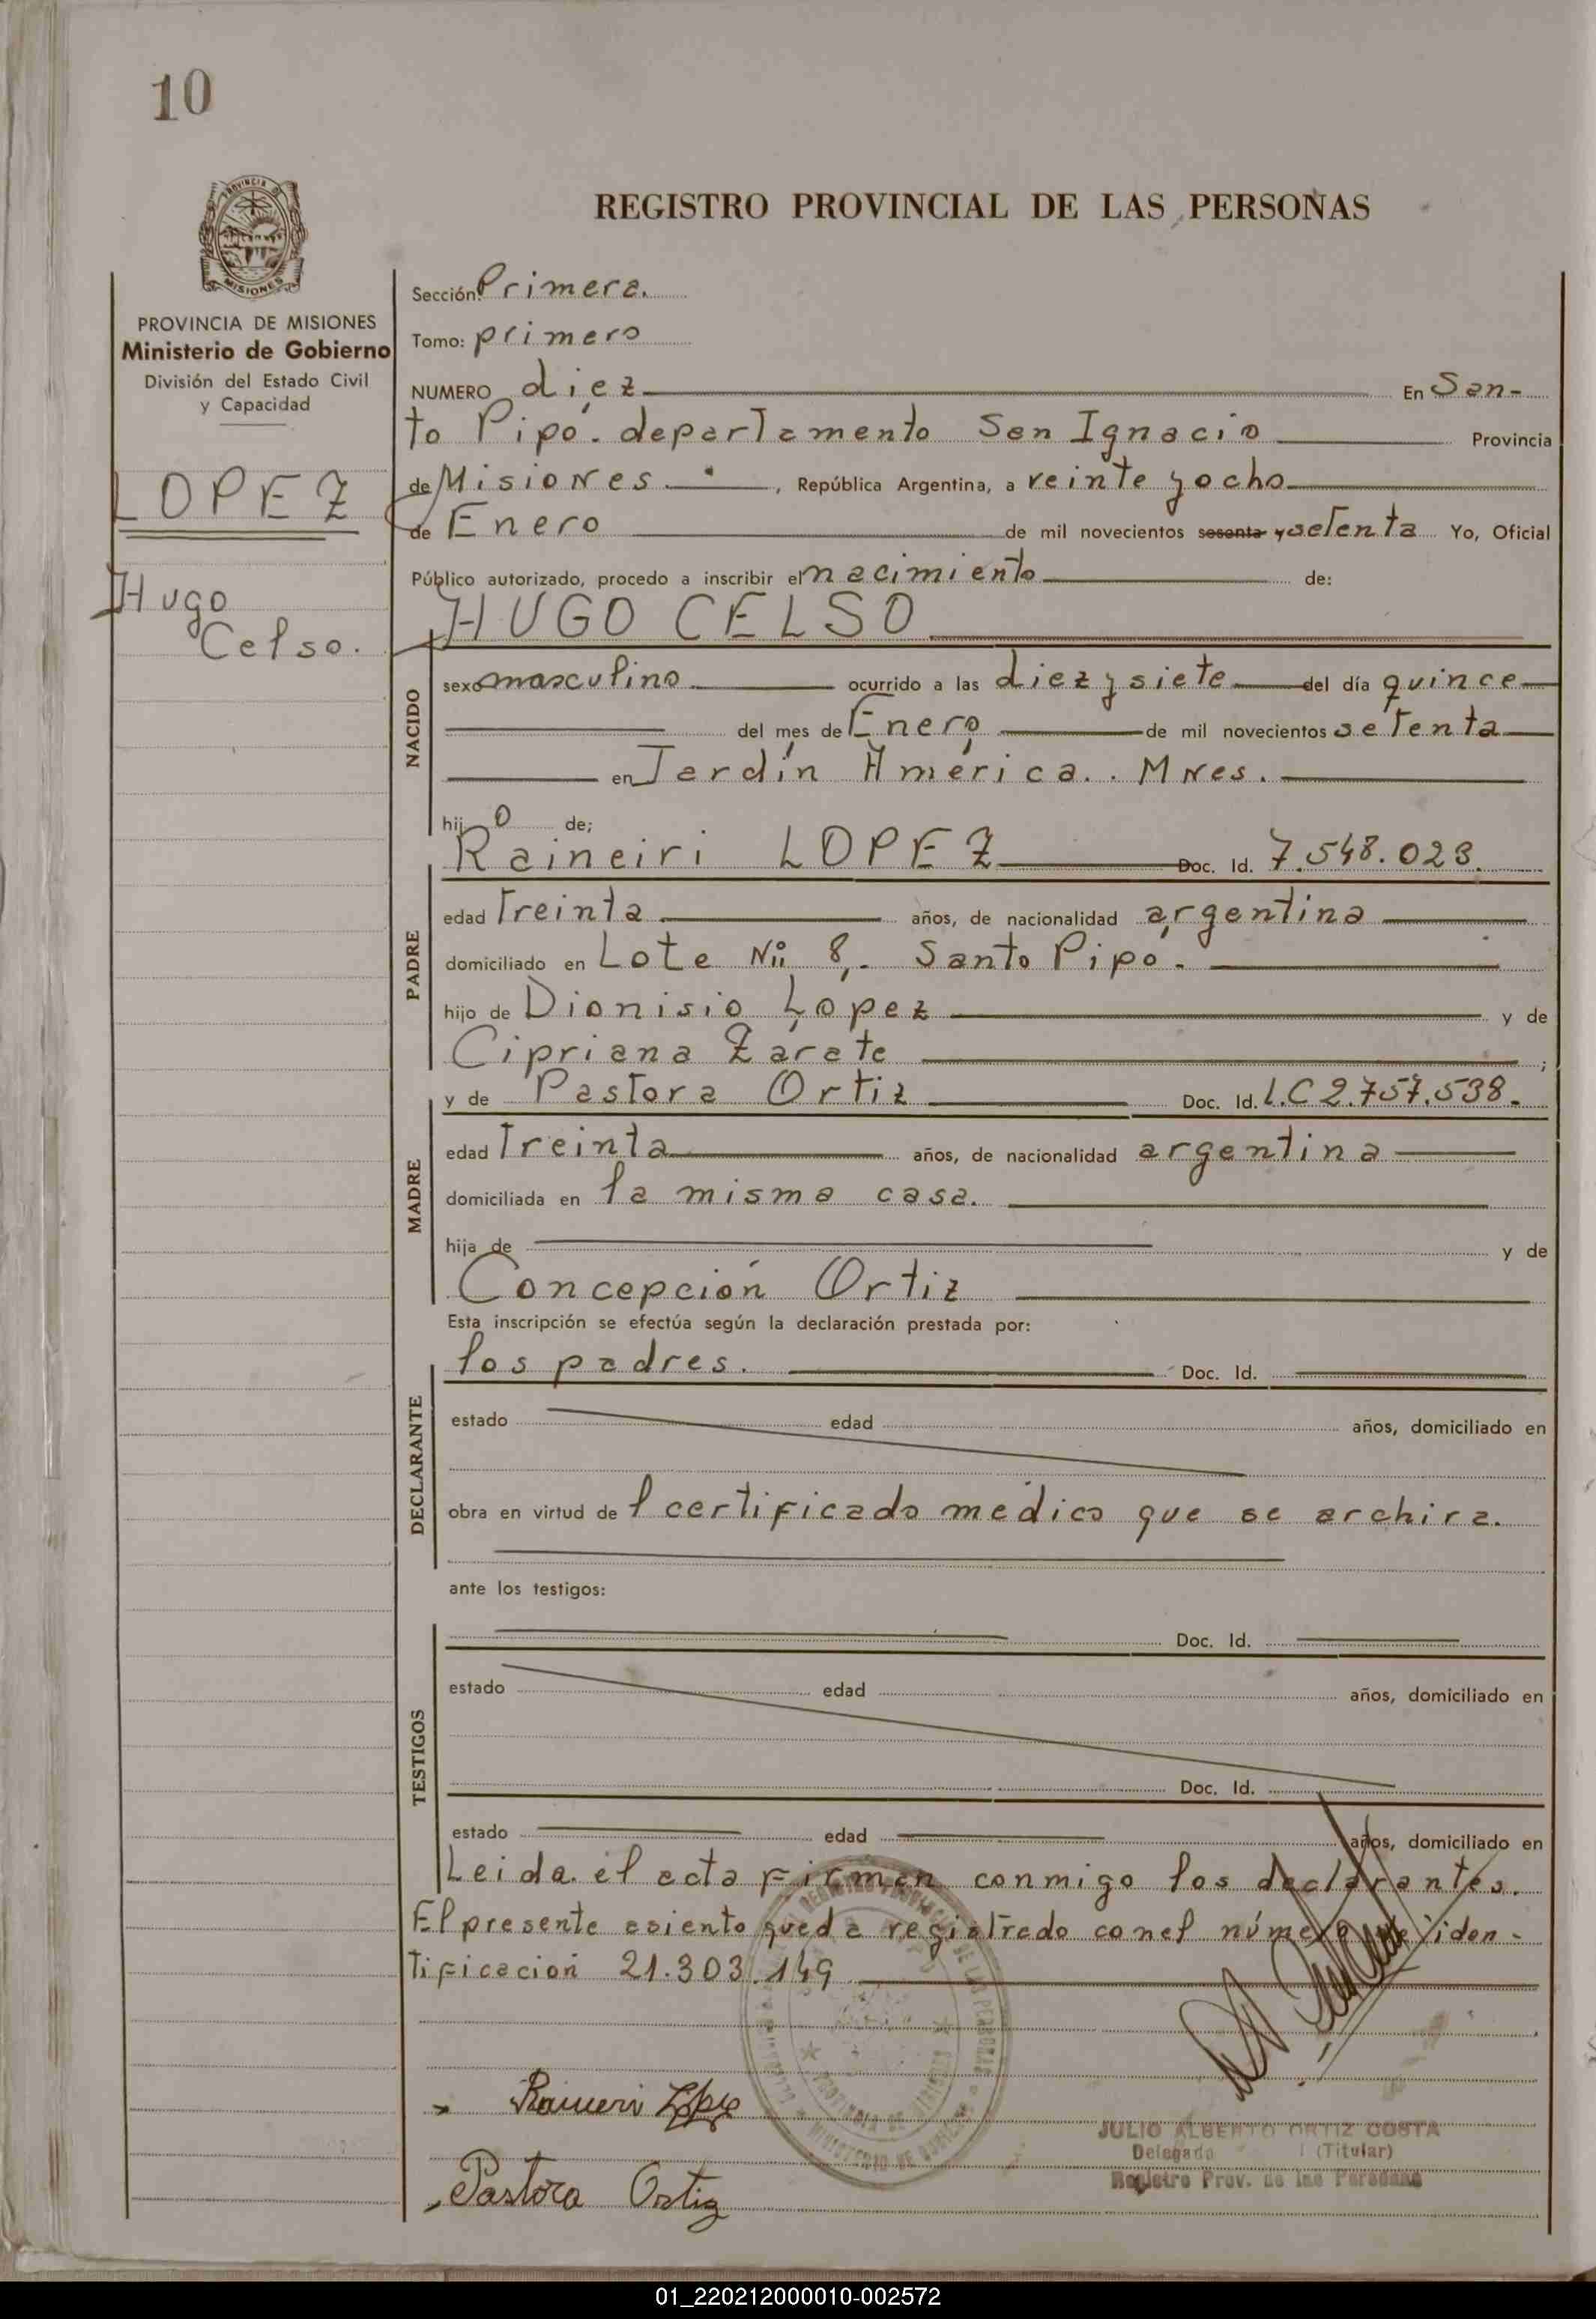 10
PROVINCIA DE
MISIONES
REGISTRO PROVINCIAL DE LAS PERSONAS
PROVINCIA DE MISIONES
Ministerio de Gobierno
División del Estado Civil
y Capacidad
LOPEZ
Hugo
Celso.
Sección: Primera.
Tomo: primero
NUMERO diez En San-
to Pipó. departamento San Ignacio Provincia
de Misiones. , República Argentina, a veinte y ocho
de Enero de mil novecientos sesenta y setenta Yo, Oficial
Público autorizado, procedo a inscribir el nacimiento de:
HUGO CELSO
NACIDO
sexo masculino ocurrido a las diez y siete del día quince
del mes de Enero de mil novecientos setenta
en Jardín América. . Mnes.
hijo de;
Raineiri LOPEZ Doc. Id. 7.548.023.
PADRE
edad Treinta años, de nacionalidad argentina
domiciliado en Lote Nº 8,. Santo Pipó.
hijo de Dionisio López y de
Cipriana Zarate ;
y de Pastora Ortiz Doc. Id. L.C 2.757.538.
MADRE
edad Treinta años, de nacionalidad argentina
domiciliada en la misma casa.
hija de y de
Concepción Ortiz
Esta inscripción se efectúa según la declaración prestada por:
los padres. Doc. Id.
DECLARANTE
estado edad años, domiciliado en
obra en virtud de l certificado medico que se archiva.
ante los testigos:
Doc. Id.
TESTIGOS
estado edad años, domiciliado en
Doc. Id.
estado edad años, domiciliado en
Leida el acta firman conmigo los declarantes.
El presente asiento queda registrado con el número de iden-
tificación 21.303.149
Raineri López
Pastora Ortiz
JULIO ALBERTO ORTIZ COSTA
Delegado (Titular)
Registro Prov. de las Personas
01_220212000010-002572